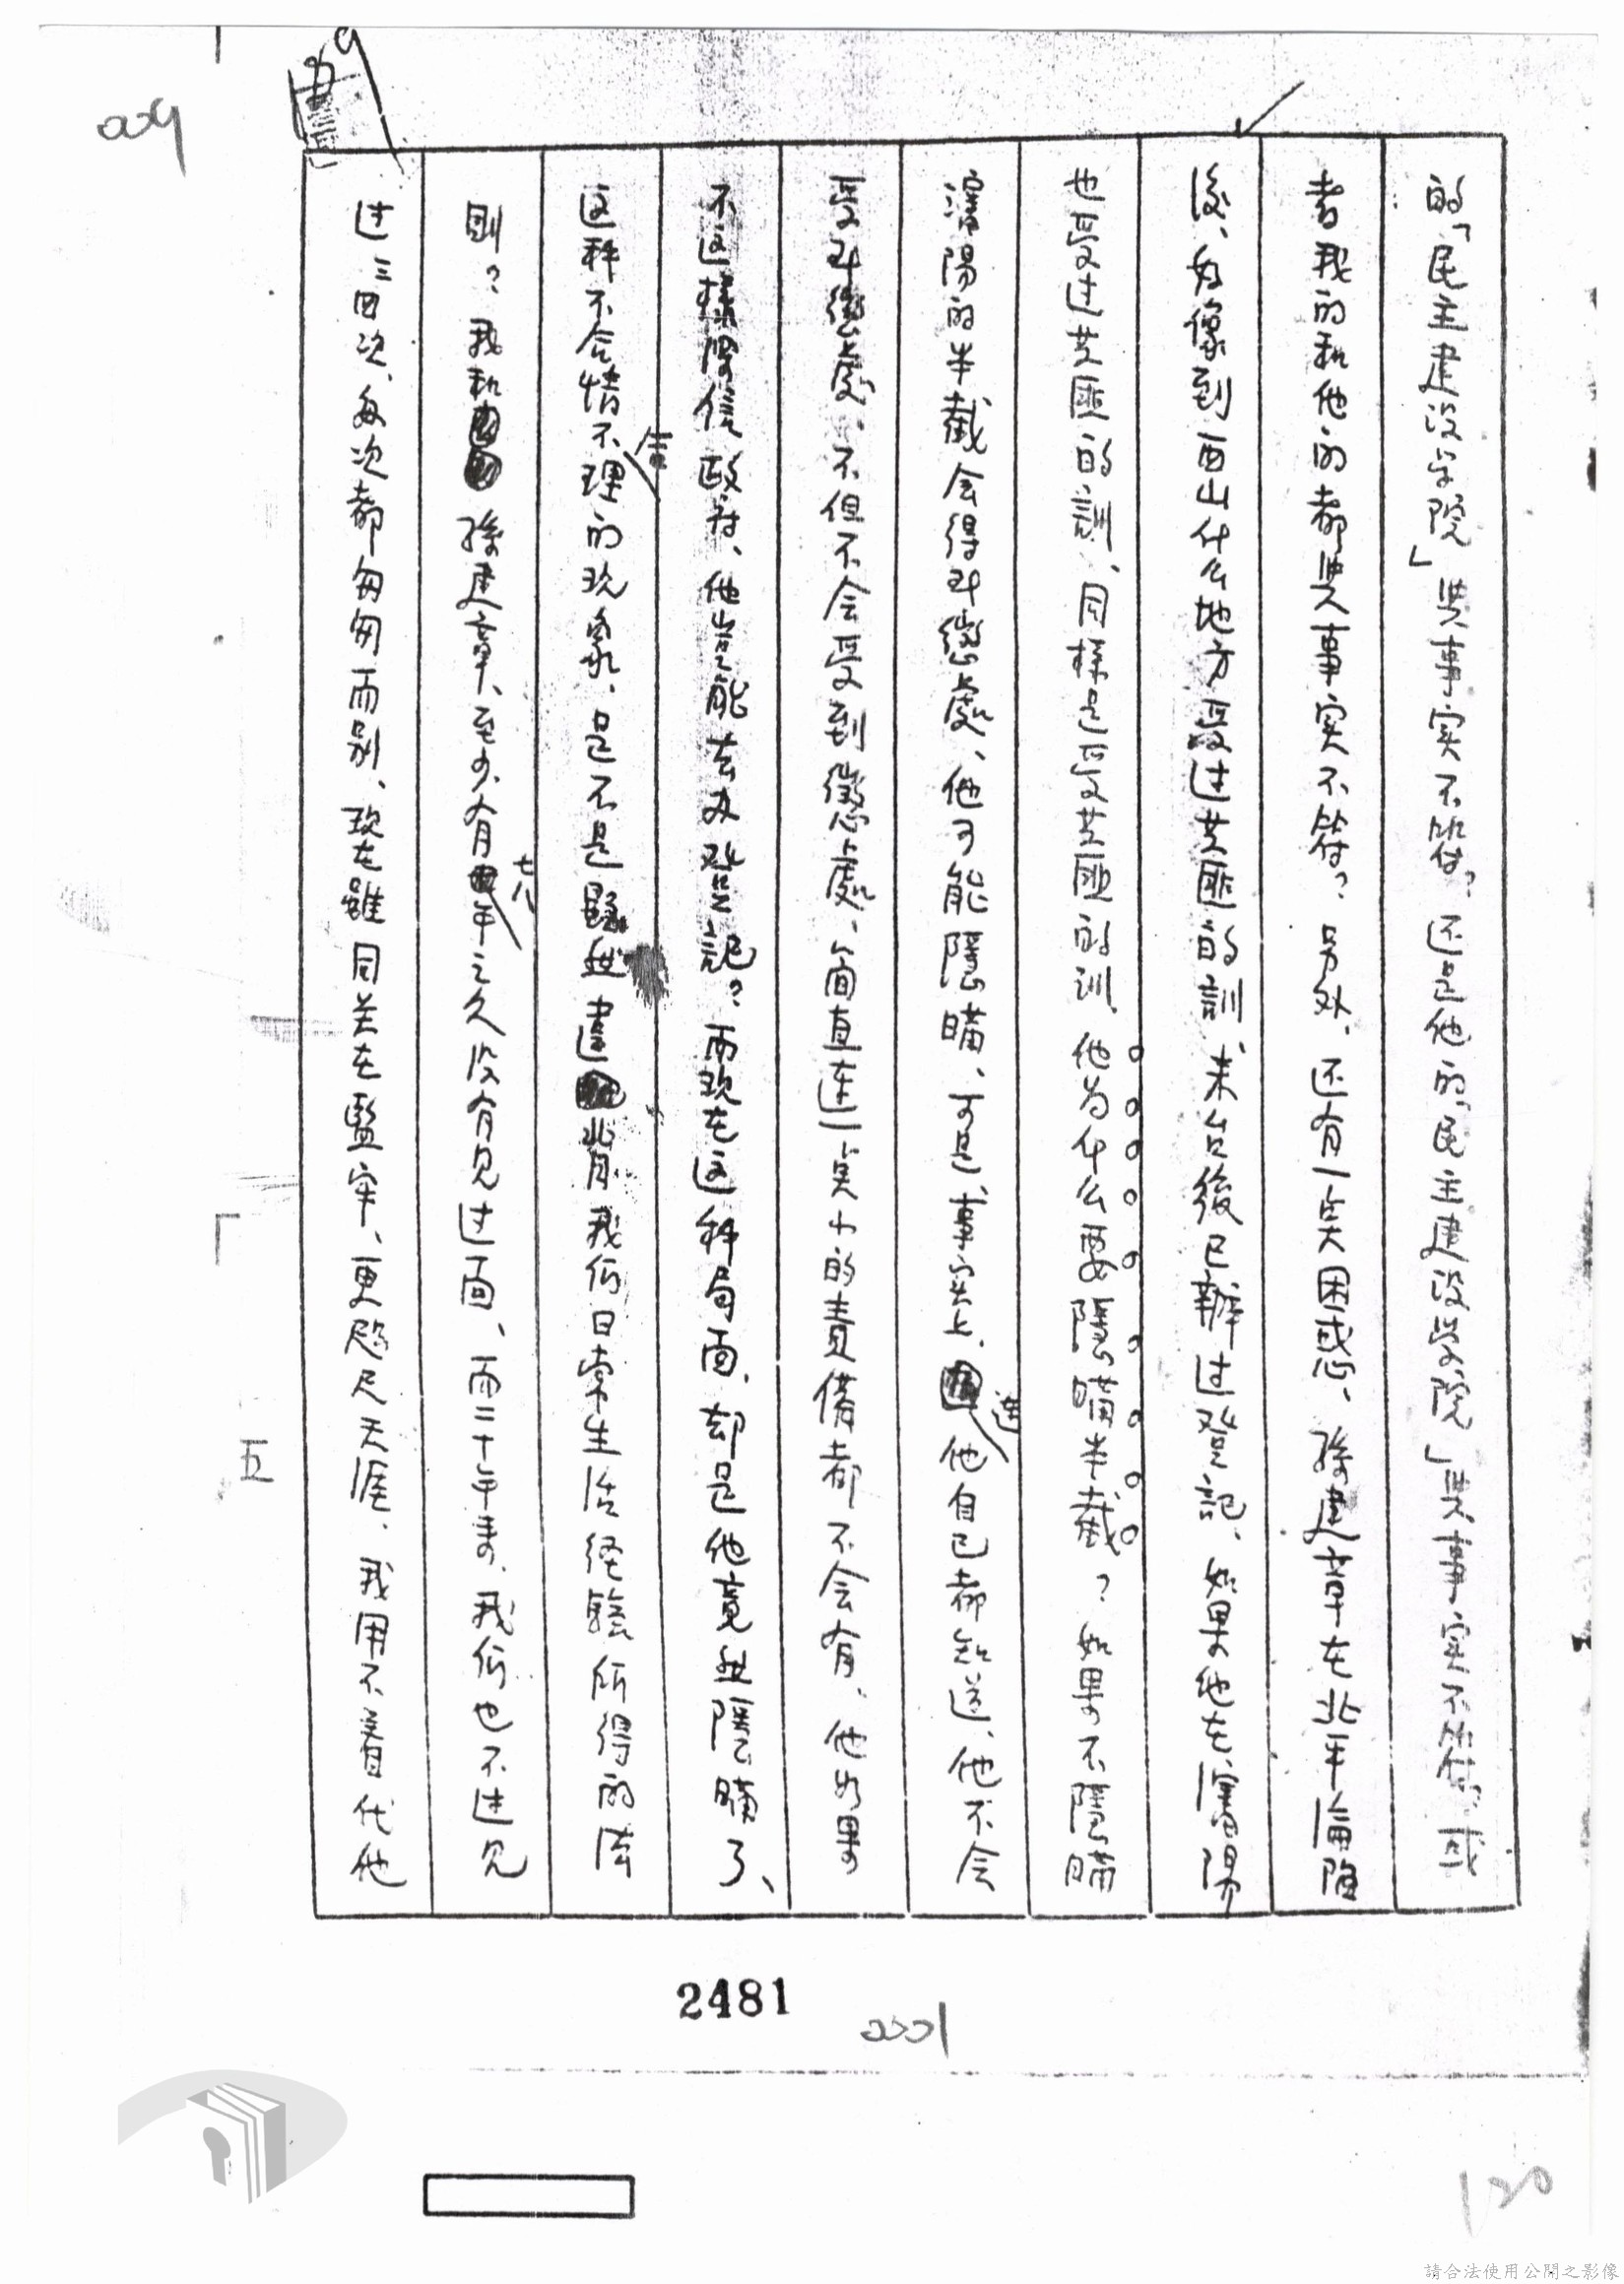 的「民主建设学院」与事实不符？还是他的「民主建设学院」与事实不符？或
者我的和他的都与事实不符？另外、还有一点困惑、孫建章在北平淪陷
後、好像到西山什么地方受过共匪的訓、来台後已辦过登記、如果他在瀋陽
也受过共匪的訓、同樣是受共匪的训、他为什么要隱瞞半截？如果不隱瞞
瀋陽的半截会得到懲處、他可能隱瞞、可是、事实上、連他自己都知道、他不会
受到懲處、不但不会受到懲處、簡直连一点小的責備都不会有、他如果
不这樣深信政府、他岂能去办登記？而现在这种局面、却是他竟然隱瞞了、
这种不合情不合理的现象、是不是顯然違背我们日常生活经驗所得的法
則？我和孫建章、至少有七八年之久没有见过面、而二十年来、我们也不过见
过三四次、每次都匆匆而别、现在雖同关在監牢、更咫尺天涯、我用不着代他
五
2481
120
請合法使用公開之影像